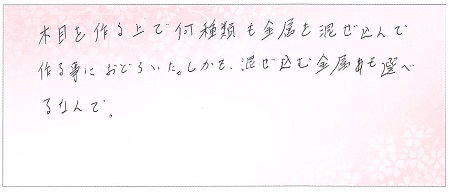 木目を作る上で何種類も金属を混ぜ込んで
作る事におどろいた。しかも、混ぜ込む金属も選べ
るなんで。